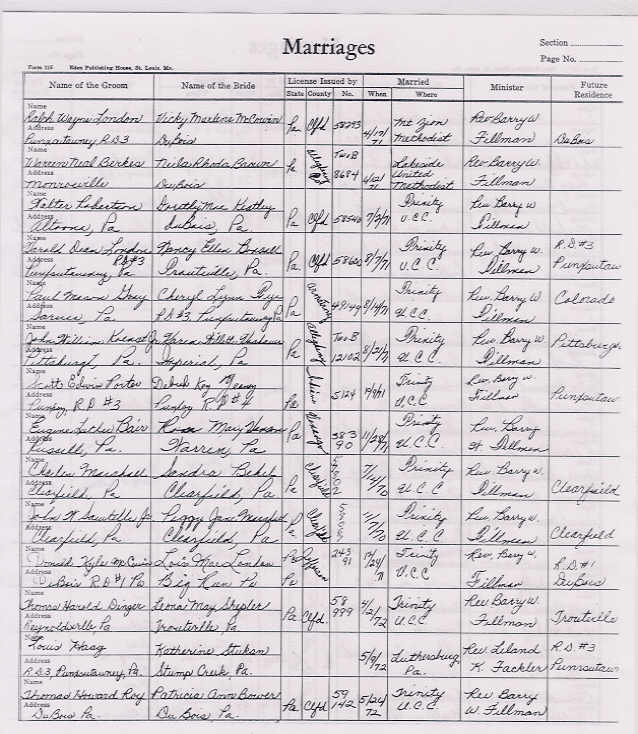 Marriages
Section
Page No.
Form 316 Eden Publishing House, St. Louis, Mo.
Name of the Groom Name of the Bride License Issued by Married Minister Future Residence
State County No. When Where
Name
Ralph Wayne London Vicky Marlene McCowin Pa Clfd 58293 4/17/71 Mt Zion Methodist Rev Barry W. Fillman DuBois
Address
Punxsutawney RD3 DuBois
Name
Warren Neal Berkes Neila Rhoda Brown Pa Allegheny Two B 8684 6/12/71 Lakeside United Methodist Rev Barry W. Fillman
Address
Monroeville DuBois
Name
Walter Robertson Dorothy Mae Pa Clfd 58540 7/7/71 Trinity U.C.C. Rev Barry W Fillman
Address
Altoona, Pa DuBois, Pa
Name
Dean London Nancy Ellen Pa Clfd 58620 8/7/71 Trinity U.C.C. Rev Barry W. Fillman R.D.#3 Punxsutaw
Address
RD#3 Punxsutawney, Pa Troutville, Pa.
Name
Paul Mason Gray Cheryl Lynn Pa Armstrong 49149 8/14/71 Trinity U.C.C. Rev. Barry W Fillman Colorado
Address
Pa RD#3, Punxsutawney Pa
Name
John William Jr Karen Pa Allegheny Two B 12102 8/21/71 Trinity U.C.C. Rev. Barry W. Fillman Pittsburgh
Address
Pittsburgh, Pa. Imperial, Pa
Name
Scott Edwin Porter Debra Kay Pa 5124 Trinity U.C.C. Rev. Barry W. Fillman Punxsutaw
Address
Punxsy, R.D #3 Punxsy R.D #4
Name
Eugene Luther Bair Rose Mary Pa 383 90 11/28/71 Trinity U.C.C. Rev. Barry W. Fillman
Address
Russell, Pa. Warren, Pa
Name
Charles Sandra Pa Clearfield 7/14/70 Trinity U.C.C. Rev Barry W. Fillman Clearfield
Address
Clearfield, Pa Clearfield, Pa
Name
John W. Jr Peggy Jane Pa Clearfield 11/7/70 Trinity U.C.C. Rev. Barry W. Fillman Clearfield
Address
Clearfield, Pa Clearfield, Pa
Name
Kyle Lois Mae London Pa Jefferson 243 91 Trinity U.C.C Rev. Barry W. Fillman R.D.#1 DuBois
Address
DuBois R.D #1 Pa Big Run Pa Pa
Name
Thomas Harold Dinger Leona May Shepler Pa Clfd. 58 999 4/2/72 Trinity U.C.C Rev Barry W. Fillman Troutville
Address
Reynoldsville Pa Troutville Pa
Name
Louis Haag Katherine Stukan 5/9/72 Luthersburg Pa. Rev Leland K. Fackler R.D.#3 Punxsutaw
Address
R.D.3, Punxsutawney, Pa. Stump Creek, Pa.
Name
Thomas Howard Roy Patricia Ann Bower Pa Clfd 59 142 5/26/72 Trinity U.C.C. Rev Barry W. Fillman
Address
DuBois Pa. DuBois Pa.